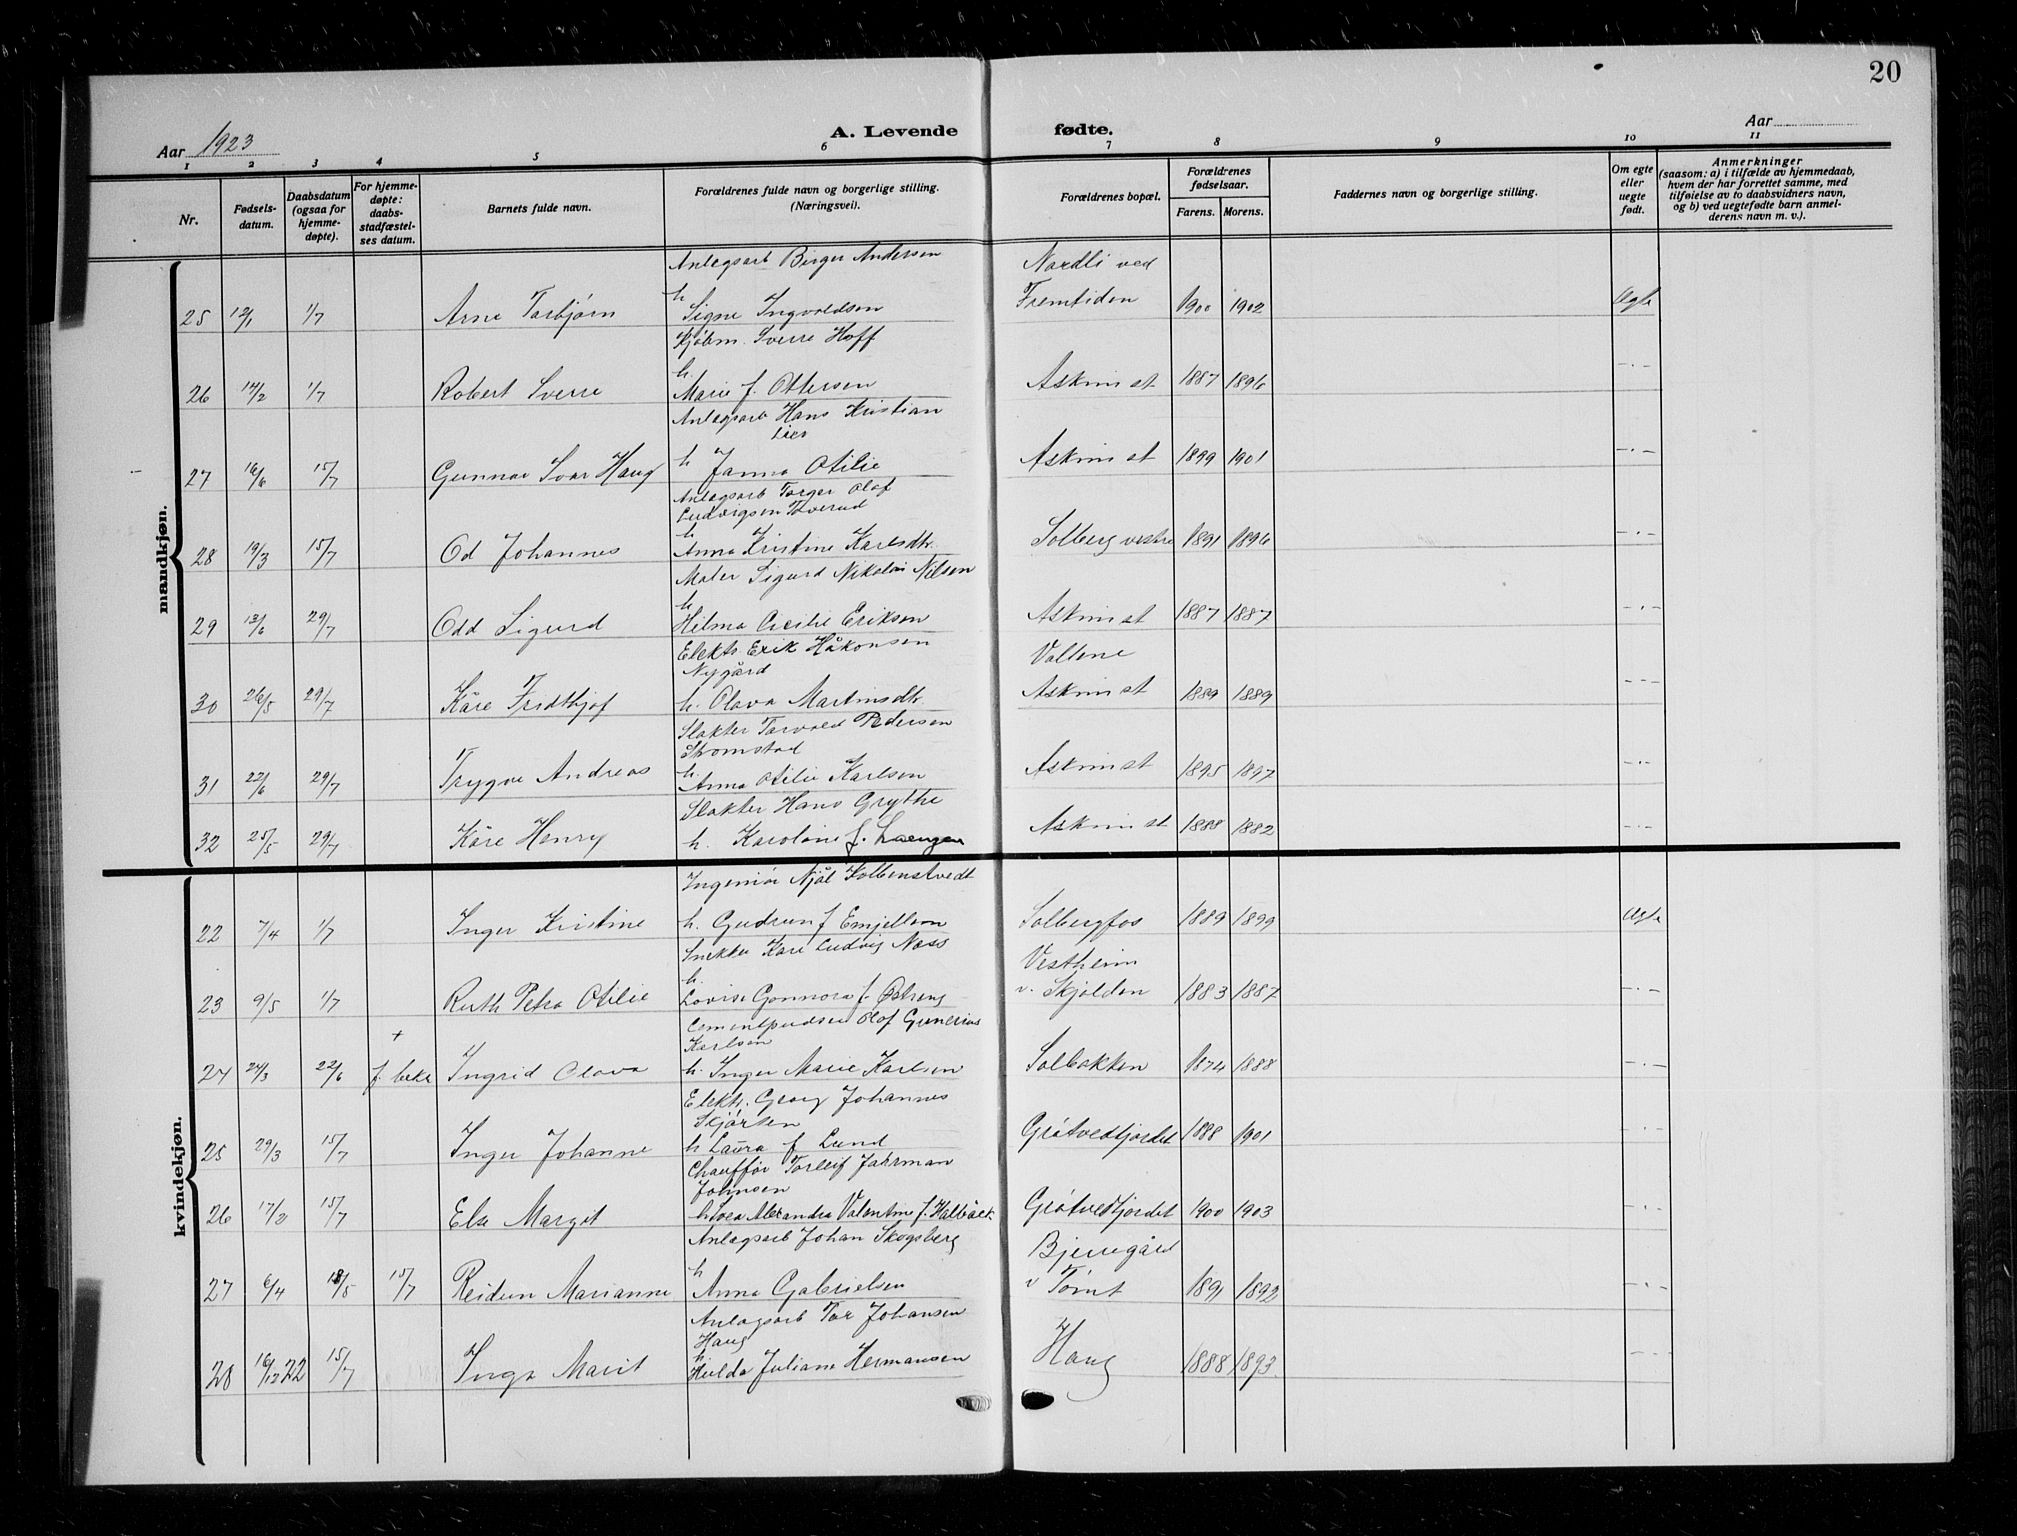 20
Aar 1923
A. Levende
fødte.
Aar
1 2 3 4 5 6 7 8 9 10 11
Nr.
Fødsels-
datum.
Daabsdatum
(ogsaa for
hjemme-
døpte).
For hjemme-
døpte:
daabs-
stadfæstel-
ses datum.
Barnets fulde navn.
Forældrenes fulde navn og borgerlige stilling.
(Næringsvei).
Forældrenes bopæl.
Forældrenes
fødselsaar.
Farens. Morens.
Faddernes navn og borgerlige stilling.
Om egte
eller
uegte
født.
Anmerkninger
(saasom: a) i tilfælde av hjemmedaab,
hvem der har forrettet samme, med
tilføielse av to daabsvidners navn,
og b) ved uegtefødte barn anmel-
derens navn m. v.).
mandkjøn.
Anlægsarb Birger Andersen Nordli ved
h
25 12/1 1/7 Arne Torbjørn Signe Ingvaldsen Fremtiden 1900 1902 Ægte
Kjøbm. Sverre Hoff
h.
26 14/2 1/7 Robert Sverre Marie f. Ottersen Askim st 1887 1896 -·-
Anlægsarb Hans Kristian
Lier
27 16/6 15/7 Gunnar Ivar Haug h Janna Otilie Askim st 1899 1901 -·-
Anlægsarb Torger Olaf
Ludvigsen Toverud
h
28 19/3 15/7 Od Johannes Anna Kristine Karlsdtr. Solberg vestre 1891 1896 -·-
Maler Sigurd Nikolai Nilsen
h
29 13/6 29/7 Odd Sigurd Hilma Cicilie Eriksen Askim st 1887 1887 -·-
Elektr Erik Håkonsen Voltene
Nygård
30 26/5 29/7 Kåre Fridthjof h. Olava Martinsdtr. Askim st 1889 1889 ---
Slakter Torvald Pedersen
Stromstad
h.
31 22/6 29/7 Trygve Andreas Anna Otilie Karlsen Askim st 1895 1897 -·-
Slakter Hans Grythe
32 25/5 29/7 Kåre Henry h. Karoline f. Laengen Askim st 1888 1882 -·-
kvindekjøn.
Ingeniør Njål Kolbenstvedt
22 7/4 1/7 Inger Kristine h. Gudrun f Emjellem Solbergfos 1889 1899 Ægte
Snekker Kare Ludvig Næss Vestheim
h.
23 9/5 1/7 Ruth Petra Otilie Lovise Gonnora f. Østreng v. Skjolden 1883 1887 -·-
+ Cementpudser Olof Gunerius
Karlsen
24 24/3 22/6 f. bekr Ingrid Olava h. Inger Marie Karlsen Solbakken 1874 1888 -·-
Elektr. Georg Johannes
Skjørten
25 29/3 15/7 Inger Johanne h Laura f Lund Grøtvedtjordet 1888 1901 -·-
Chauffør Torleif Jahrman
Johnsen
26 17/2 15/7 Else Margit h Svea Alexandra Valentine f. Hallbäck Grøtvedtjordet 1900 1903 -·-
Anlagsarb Johan Skogsberg Bjerregård
h
27 6/4 18/5 15/7 Reidun Marianne Anna Gabrielsen v Tømt 1891 1892 -·-
Anlagsarb Tor Johansen
Haug
h
28 16/12 22 15/7 Inga Marit Hulda Juliane Hermansen Haug 1888 1893. ---